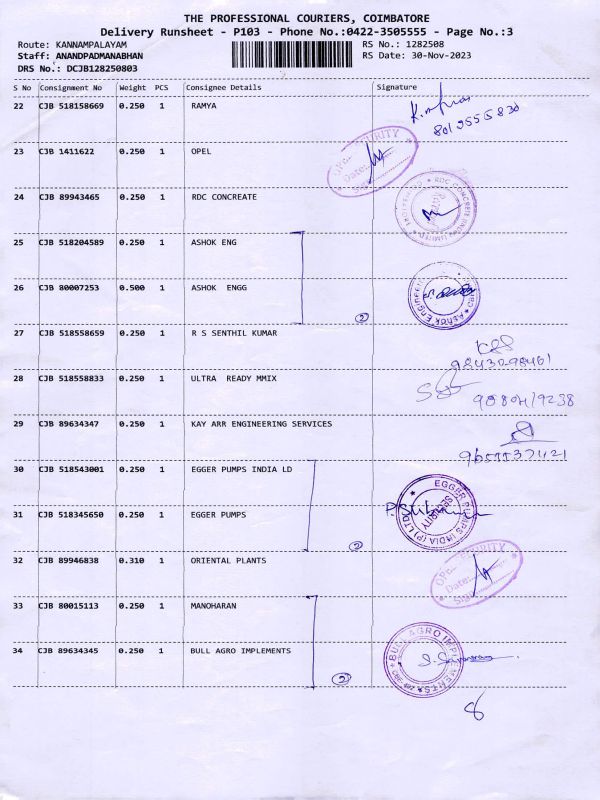 THE PROFESSIONAL COURIERS, COIMBATORE
Delivery Runsheet - P103 - Phone No.:0422-3505555 - Page No.:3
Route: KANNAMPALAYAM RS No.: 1282508
Staff: ANANDPADMANABHAN RS Date: 30-Nov-2023
DRS No.: DCJB128250803
S No Consignment No Weight PCS Consignee Details Signature
22 CJB 518158669 0.250 1 RAMYA
8019555830
23 CJB 1411622 0.250 1 OPEL
SECURITY
Date:
24 CJB 89943465 0.250 1 RDC CONCREATE
RDC CONCRETE (INDIA) LIMITED
25 CJB 518204589 0.250 1 ASHOK ENG
26 CJB 80007253 0.500 1 ASHOK ENGG
2
Ashok Engineering
27 CJB 518558659 0.250 1 R S SENTHIL KUMAR
9843098461
28 CJB 518558833 0.250 1 ULTRA READY MMIX
29 CJB 89634347 0.250 1 KAY ARR ENGINEERING SERVICES
30 CJB 518543001 0.250 1 EGGER PUMPS INDIA LD
EGGER PUMPS INDIA (P) LTD
SECURITY
31 CJB 518345650 0.250 1 EGGER PUMPS
2
32 CJB 89946838 0.310 1 ORIENTAL PLANTS
SECURITY
Date:
33 CJB 80015113 0.250 1 MANOHARAN
34 CJB 89634345 0.250 1 BULL AGRO IMPLEMENTS
2
BULL AGRO IMPLEMENTS
8